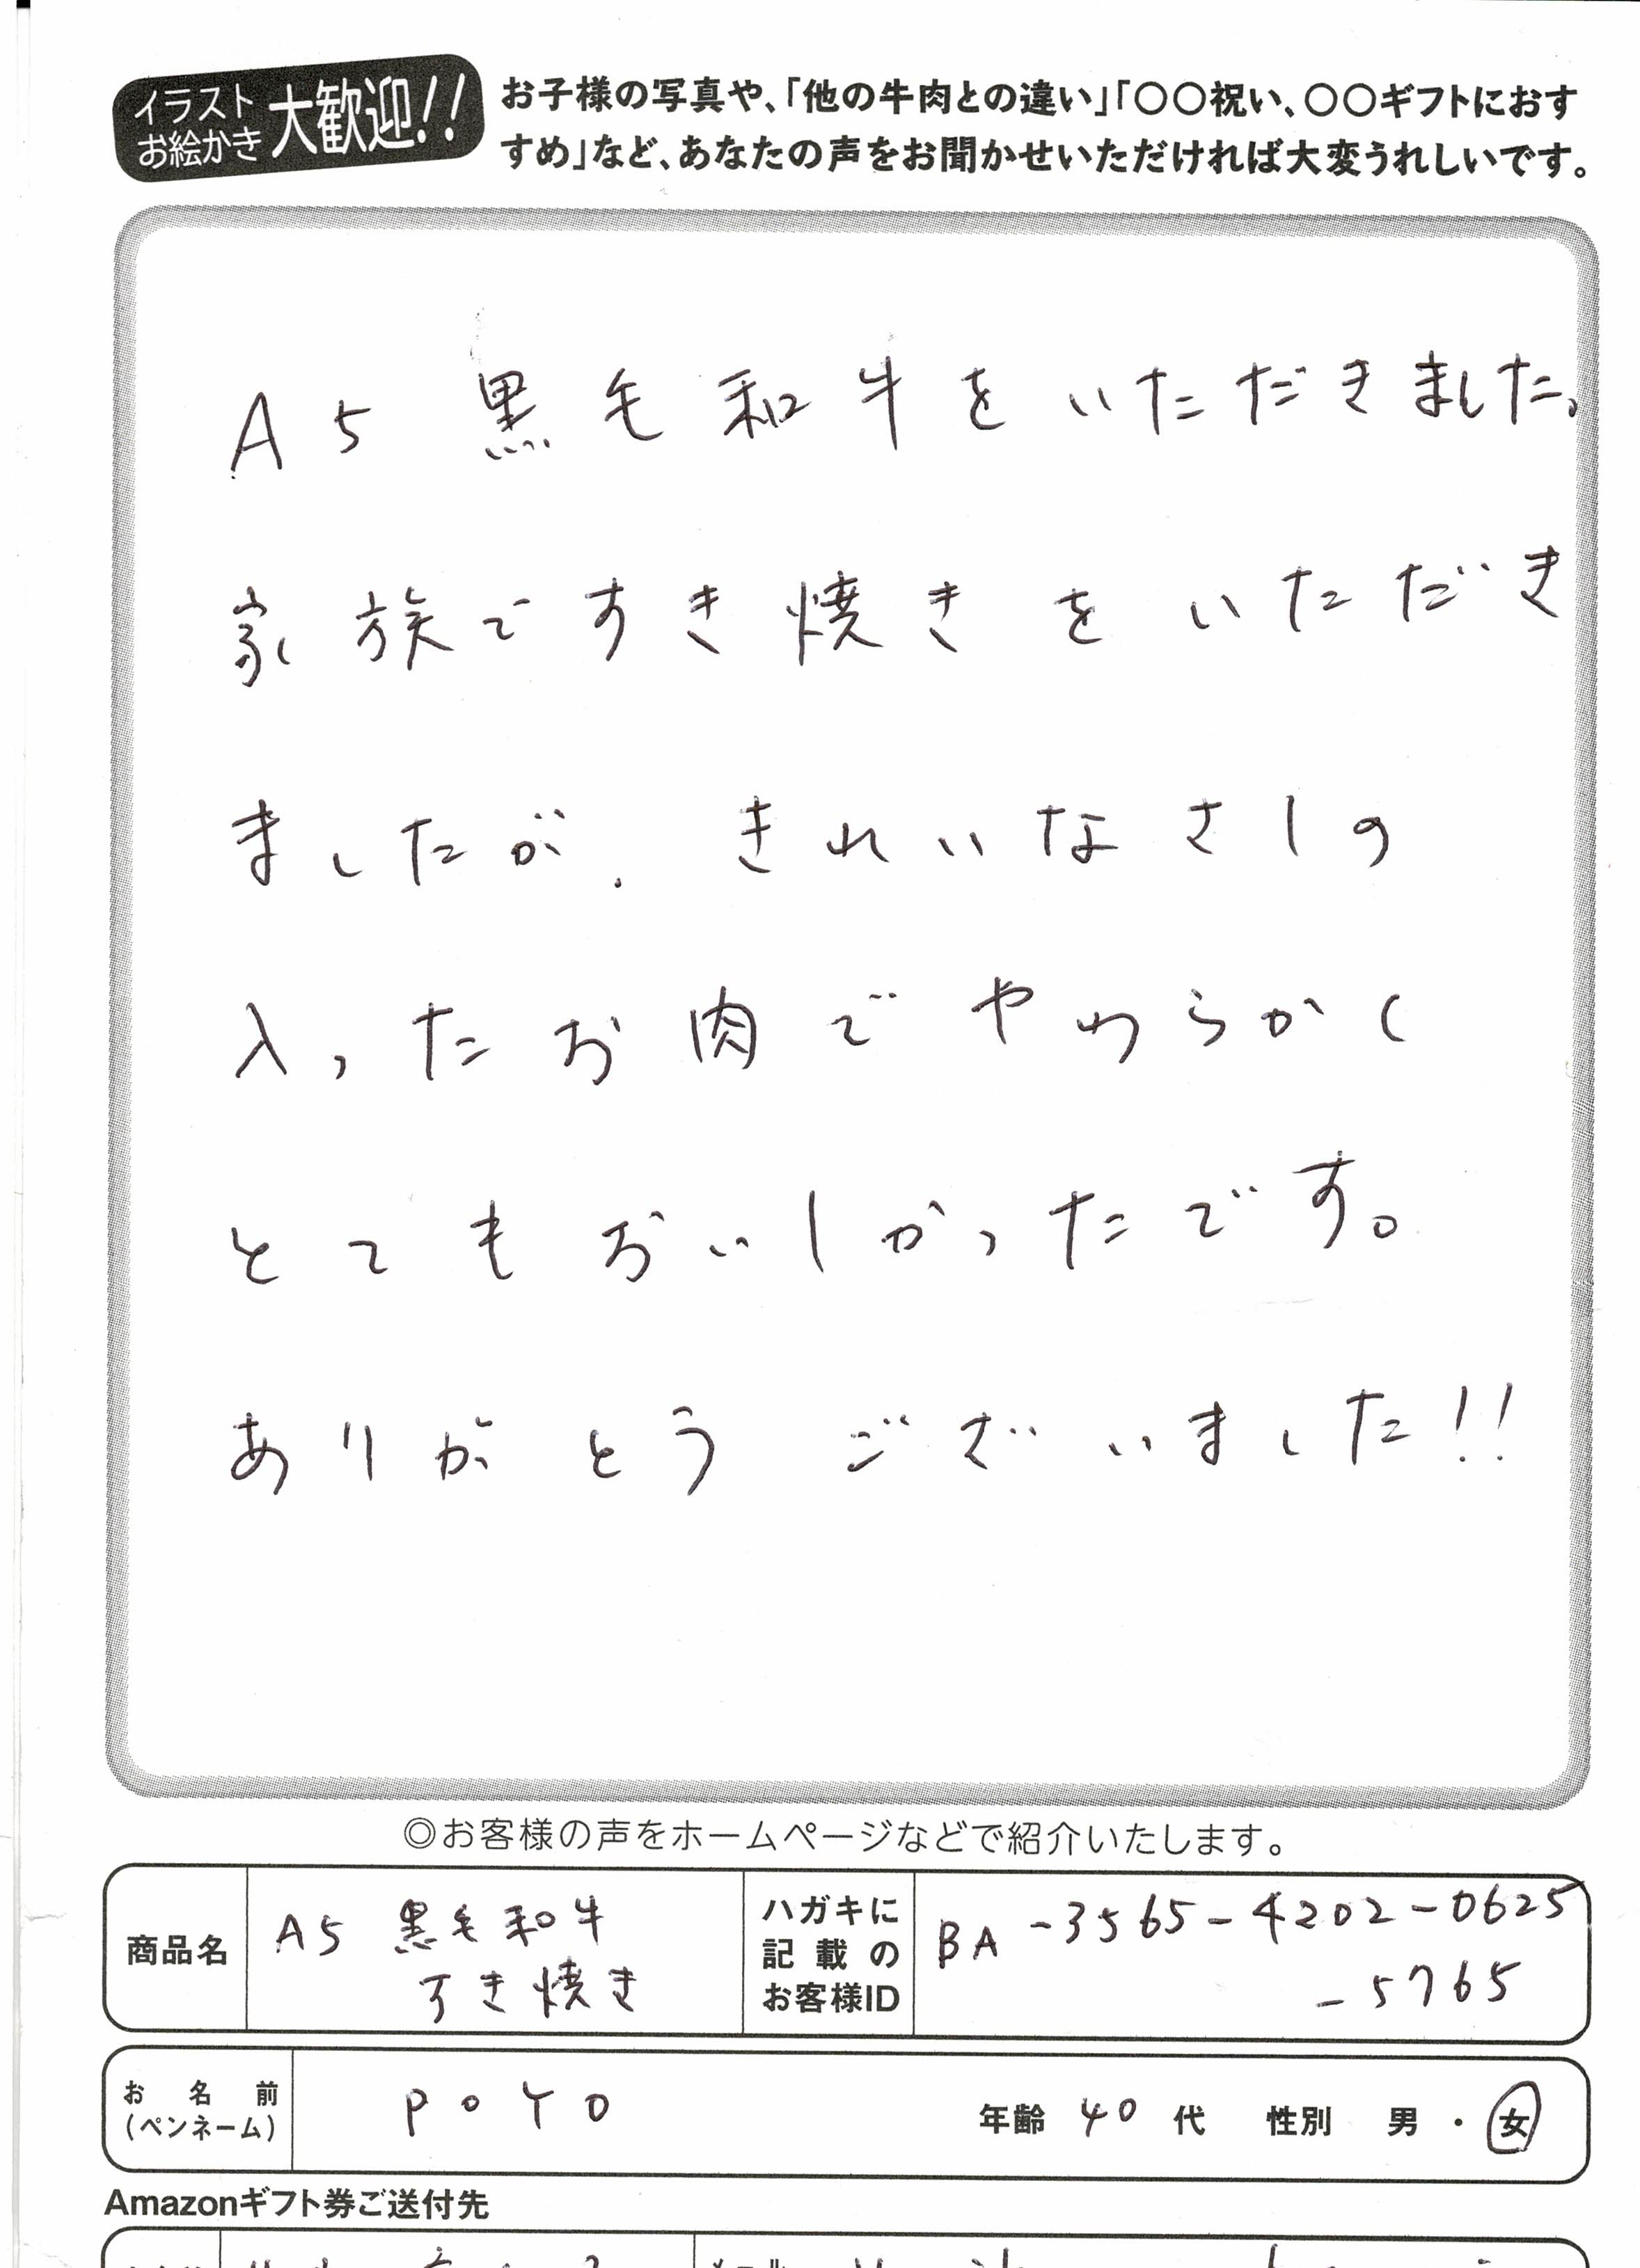 イラスト
お絵かき
大歓迎!!
お子様の写真や、「他の牛肉との違い」「〇〇祝い、〇〇ギフトにおす
すめ」など、あなたの声をお聞かせいただければ大変うれしいです。
A5 黒毛和牛をいただきました。
家族ですき焼きをいただき
ましたが、きれいなさしの
入ったお肉でやわらかく
とてもおいしかったです。
ありがとうございました!!
◎お客様の声をホームページなどで紹介いたします。
商品名
A5 黒毛和牛
すき焼き
ハガキに
記載の
お客様ID
BA-3565-4202-0625
-5765
お名前
(ペンネーム)
poyo
年齢 40 代 性別 男・女
Amazonギフト券ご送付先